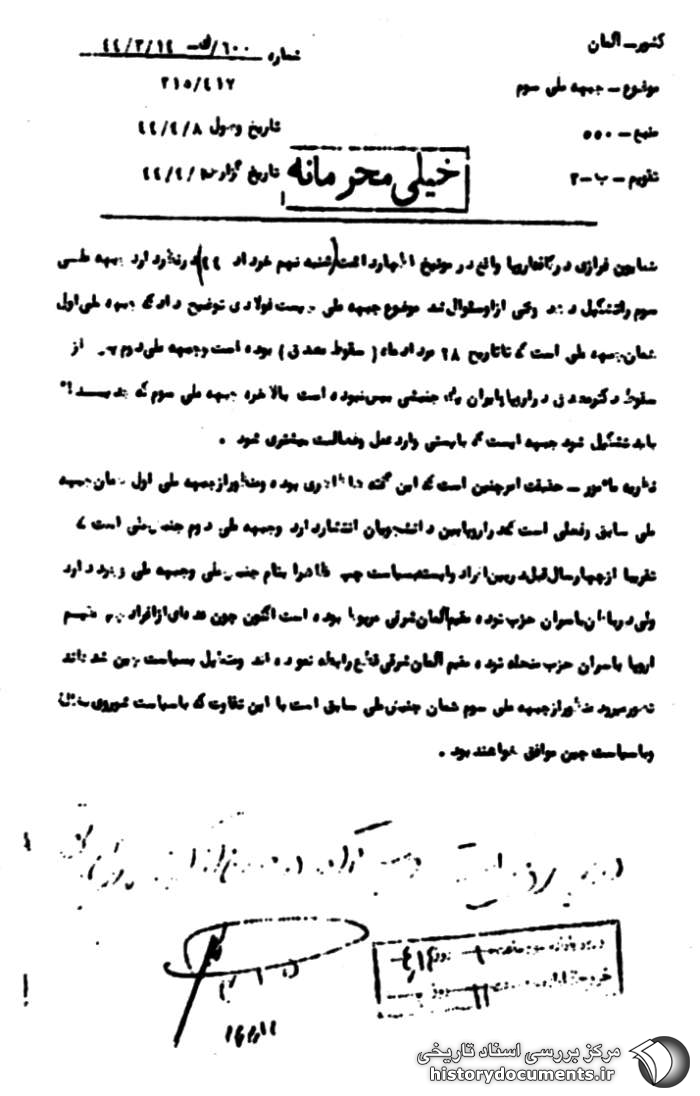 کشور ـ آلمان
شماره ۶۰۰/ان ـ ۴۴/۳/۱۴
موضوع ـ جبهه ملی سوم
۳۱۵/۴۱۲
منبع ـ ۵۵۰
تاریخ وصول ۴۴/۴/۸
تقویم ـ ب ـ ۲
تاریخ گزارش
خیلی محرمانه
فرازی در کافه‌اریبا واقع در مونیخ اظهار داشت (شنبه نهم خرداد ۴۴) در نظر دارد جبهه ملی
سوم را تشکیل دهد وقتی از او سئوال شد موضوع جبهه ملی چیست فولادی توضیح داد که جبهه ملی اول
همان جبهه ملی است که تا تاریخ ۲۸ مرداد ماه (سقوط مصدق) بوده است و جبهه ملی دوم پس از
سقوط دکتر مصدق در اروپا یا ایران جنبشی بیش نبوده است بالاخره جبهه ملی سوم که جدیداً
باید تشکیل شود جبهه ایست که بایستی وارد عمل و فعالیت بیشتری شود .
نظریه مامور ـ حقیقت امر چنین است که این گفته ظاهری بوده و منظور از جبهه ملی اول همان جبهه
ملی سابق و فعلی است که در اروپا بین دانشجویان انتشار دارد و جبهه ملی دوم جنبش ملی است که
تقریبا از چهار سال قبل در بین افراد وابسته بسیاست چپ ظاهرا بنام جنبش ملی و جبهه ملی وجود دارد
ولی در باطن با سران حزب توده مقیم آلمان شرقی مربوط بوده است اکنون چون عده‌ای از افراد چپ مقیم
اروپا با سران حزب منحله توده مقیم آلمان شرقی قطع رابطه نموده اند و متمایل بسیاست چین شده‌اند
تصور میرود منظور از جبهه ملی سوم همان جنبش ملی سابق است با این تفاوت که با سیاست شوروی مخالف
و با سیاست چین موافق خواهند بود .
مرکز بررسی اسناد تاریخی
historydocuments.ir